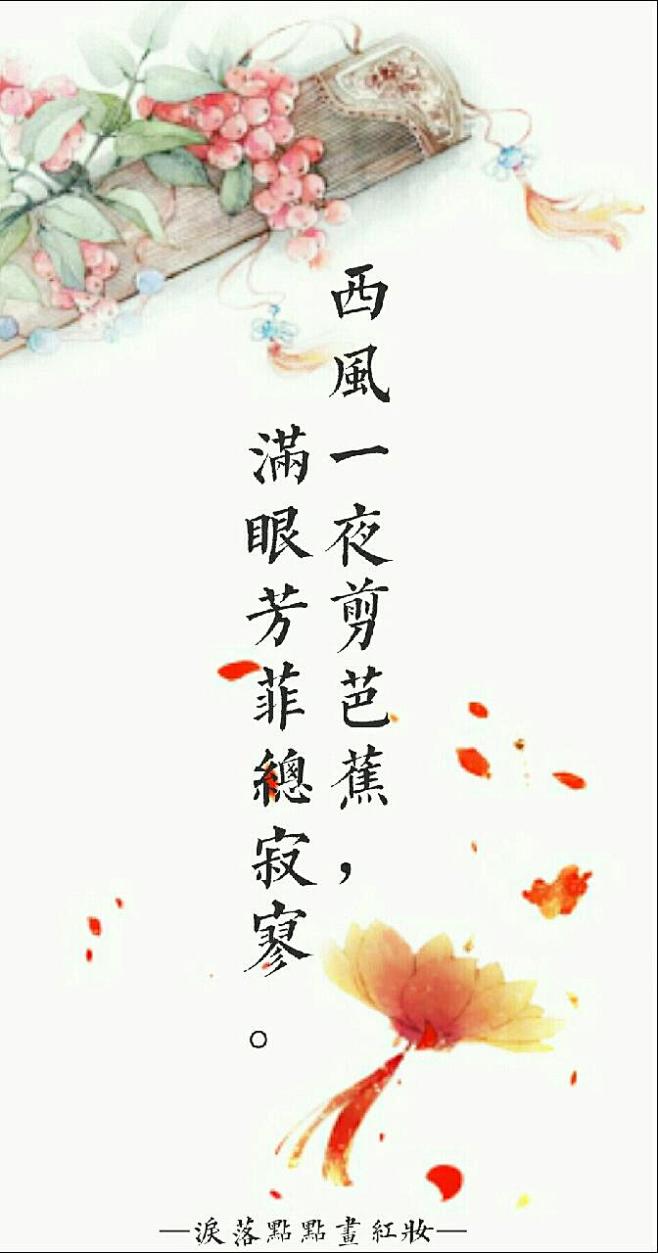 西風一夜剪芭蕉，
滿眼芳菲總寂寥。
—淚落點點畫紅妝—